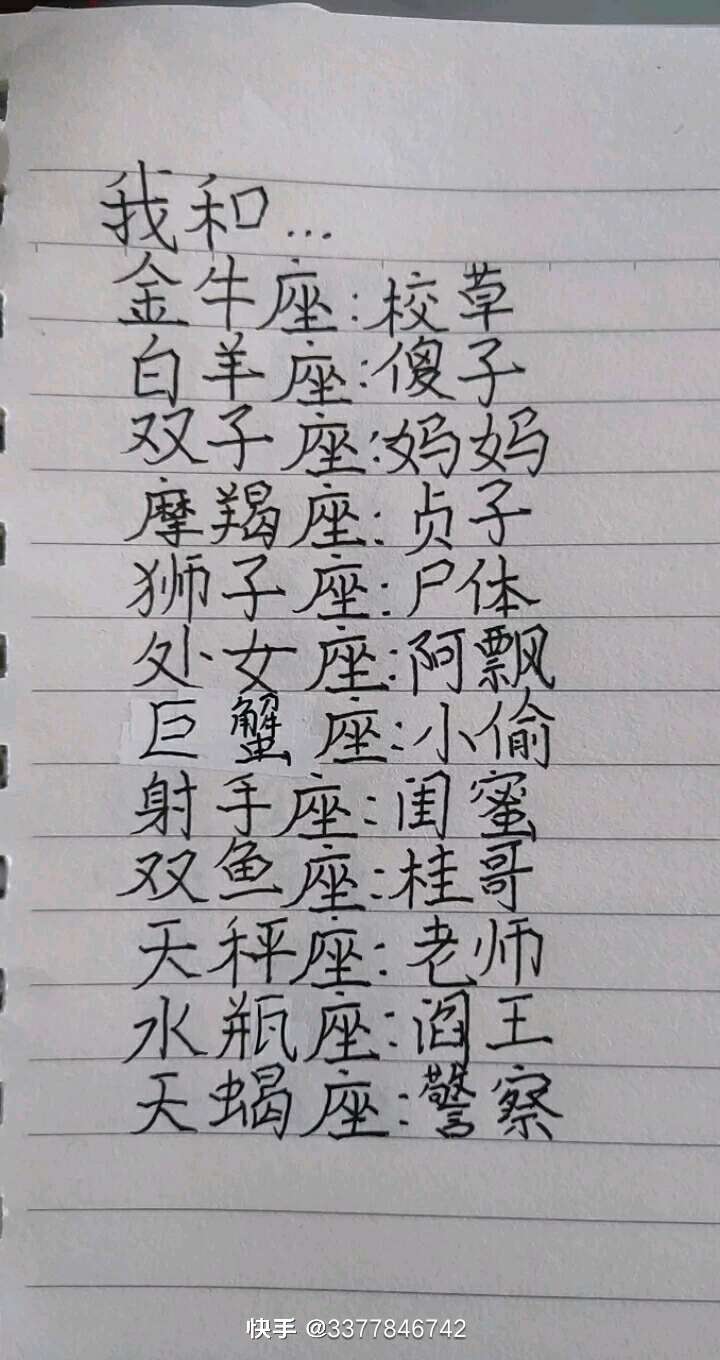 我和...
金牛座:校草
白羊座:傻子
双子座:妈妈
摩羯座:贞子
狮子座:尸体
处女座:阿飘
巨蟹座:小偷
射手座:闺蜜
双鱼座:桂哥
天秤座:老师
水瓶座:阎王
天蝎座:警察
快手 @3377846742